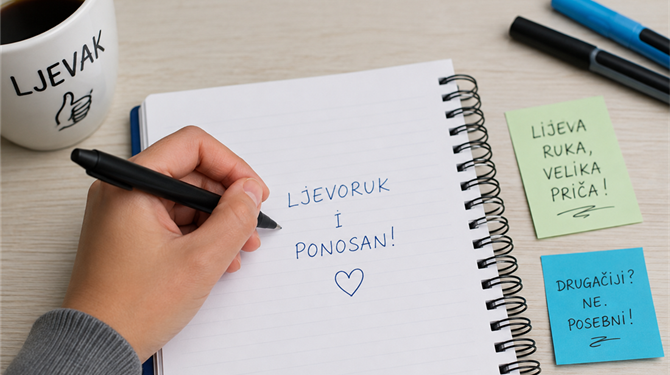 LJEVAK
LJEVORUK
I
PONOSAN!
LIJEVA
RUKA,
VELIKA
PRIČA!
DRUGAČIJI?
NE.
POSEBNI!